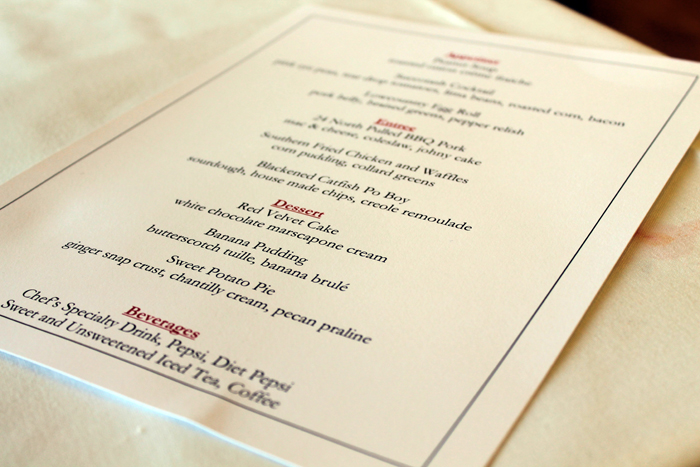 Appetizer
Peanut Soup
roasted onion creme fraiche
Succotash Cocktail
pink eye peas, tear drop tomatoes, lima beans, roasted corn, bacon
Lowcountry Egg Roll
pork belly, braised greens, pepper relish
Entree
24 North Pulled BBQ Pork
mac & cheese, coleslaw, johny cake
Southern Fried Chicken and Waffles
corn pudding, collard greens
Blackened Catfish Po Boy
sourdough, house made chips, creole remoulade
Dessert
Red Velvet Cake
white chocolate marscapone cream
Banana Pudding
butterscotch tuille, banana brulé
Sweet Potato Pie
ginger snap crust, chantilly cream, pecan praline
Beverages
Chef's Specialty Drink, Pepsi, Diet Pepsi
Sweet and Unsweetened Iced Tea, Coffee